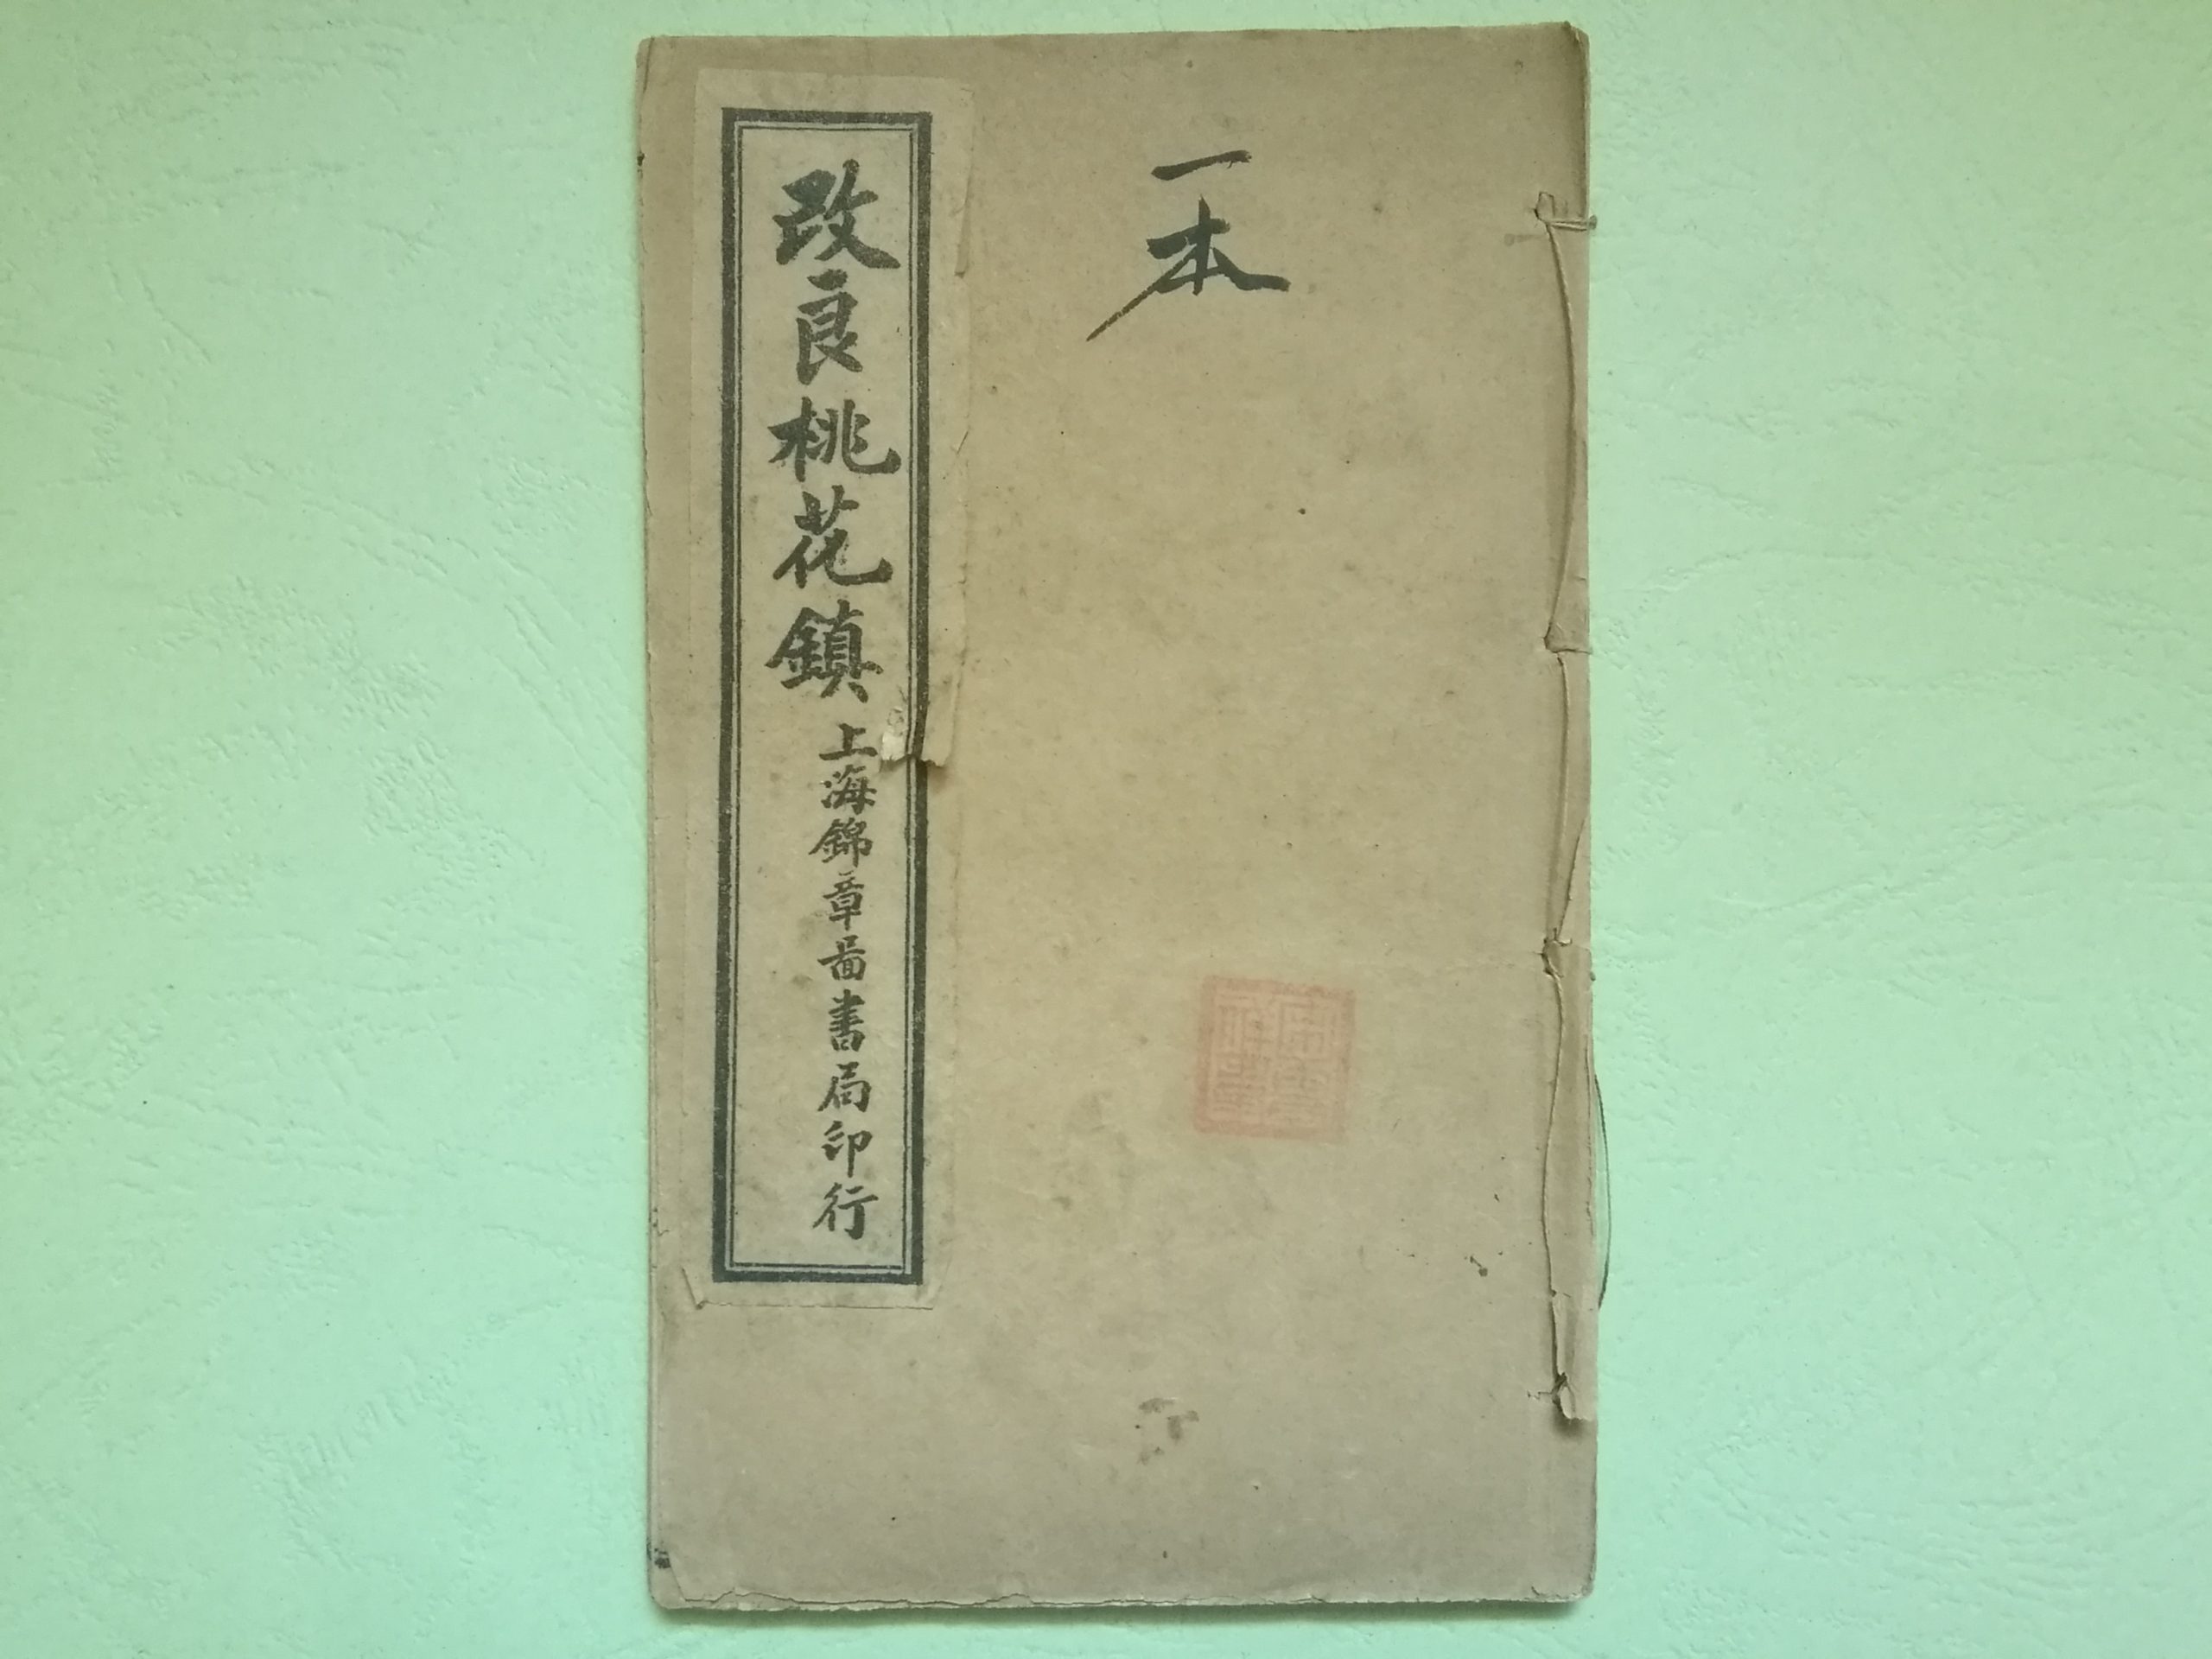 一本
改良桃花鎮
上海錦章啚書局印行